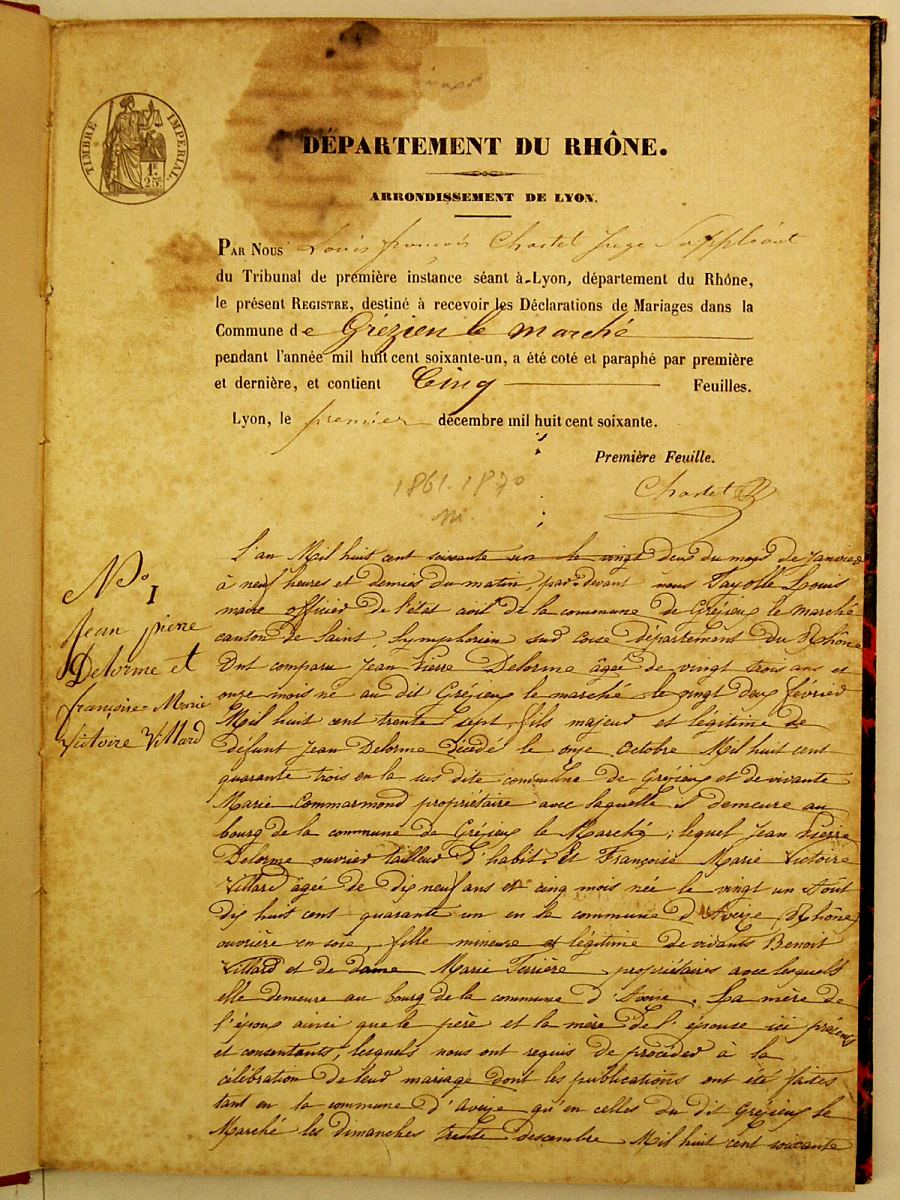 TIMBRE IMPÉRIAL.
1F. 25C.
DÉPARTEMENT DU RHÔNE.
ARRONDISSEMENT DE LYON.
PAR NOUS Louis françois Chastet Juge Suppléant
du Tribunal de première instance séant à Lyon, département du Rhône,
le présent REGISTRE, destiné à recevoir les Déclarations de Mariages dans la
Commune de Grézieu le marché
pendant l'année mil huit cent soixante-un, a été coté et paraphé par première
et dernière, et contient Cinq Feuilles.
Lyon, le premier décembre mil huit cent soixante.
Première Feuille.
Chastet
1861.1870
m.
N° 1
Jean pierre
Delorme et
françoise Marie
Victoire Villard
L'an Mil huit cent soixante un le vingt deux du mois de Janvier
à neuf heures et demis du matin, par devant nous Fayolle Louis
maire officier de l'état civil de la commune de Gréjieux le marché
canton de Saint Symphorien sud coise département du Rhône
Ont comparu Jean Pierre Delorme âgée de vingt trois ans et
onze mois né au dit Gréjieux le marché le vingt deux février
Mil huit cent trente sept, fils majeur et légitime de
défunt Jean Delorme décédé le onze Octobre Mil huit cent
quarante trois en la sus dite commune de Gréjieux et de vivante
Marie Commarmond propriétaire avec laquelle il demeure au
bourg de la commune de Gréjieux le Marché ; lequel Jean Pierre
Delorme ouvrier tailleur d'habit. Et Françoise Marie Victoire
Villard âgée de dix neuf ans et cinq mois née le vingt un Août
dix huit cent quarante un en la commune d'Aveize (Rhône)
ouvrière en soie, fille mineure et légitime de vivants Benoit
Villard et de dame Marie propriétaires avec lesquels
elle demeure au bourg de la commune d'Aveize. La mère de
l'époux ainsi que le père et la mère de l'épouse ici présents
et consentants, lesquels nous ont requis de procéder à la
célébration de leur mariage dont les publications ont été faites
tant en la commune d'Aveize qu'en celles du dit Gréjieux le
Marché les dimanches trente descembre Mil huit cent soixante